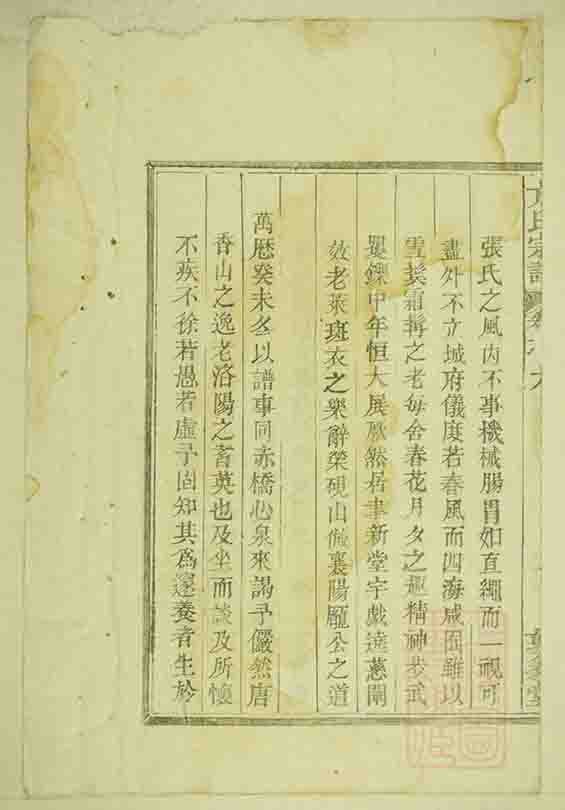 方氏宗譜
張氏之風內不事機械腸胃如直繩而一視可
盡外不立城府儀度若春風而四海咸囿雖以
雪鬓霜髯之老每舍春花月夕之趣精神步武
矍鑠中年恒大展厥然居聿新堂宇戲遶慈闈
效老萊斑衣之樂辭榮硯山倣襄陽龐公之道
萬曆癸未冬以譜事同赤橋心泉來謁予儼然唐
香山之逸老洛陽之耆英也及坐而談及所懷
不疾不徐若愚若虛予固知其為邃養者生於